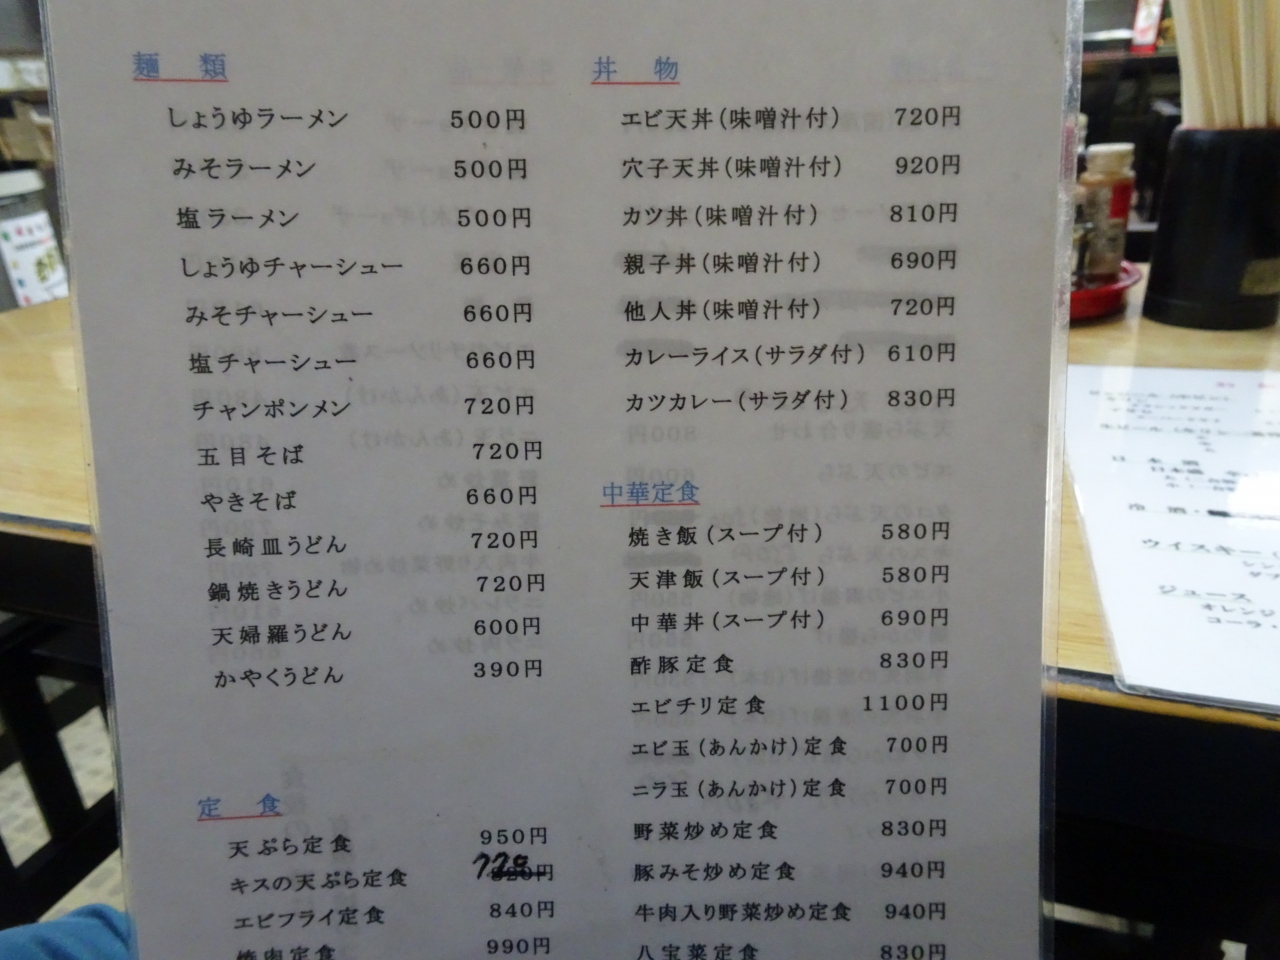 麺　類
しょうゆラーメン 500円
みそラーメン 500円
塩ラーメン 500円
しょうゆチャーシュー 660円
みそチャーシュー 660円
塩チャーシュー 660円
チャンポンメン 720円
五目そば 720円
やきそば 660円
長崎皿うどん 720円
鍋焼きうどん 720円
天婦羅うどん 600円
かやくうどん 390円
定　食
天ぷら定食 950円
キスの天ぷら定食 820円
エビフライ定食 840円
焼肉定食 990円
丼　物
エビ天丼(味噌汁付) 720円
穴子天丼(味噌汁付) 920円
カツ丼(味噌汁付) 810円
親子丼(味噌汁付) 690円
他人丼(味噌汁付) 720円
カレーライス(サラダ付) 610円
カツカレー(サラダ付) 830円
中華定食
焼き飯(スープ付) 580円
天津飯(スープ付) 580円
中華丼(スープ付) 690円
酢豚定食 830円
エビチリ定食 1100円
エビ玉(あんかけ)定食 700円
ニラ玉(あんかけ)定食 700円
野菜炒め定食 830円
豚みそ炒め定食 940円
牛肉入り野菜炒め定食 940円
八宝菜定食 830円
日本酒
冷酒・
ウイスキー(
ジュース
オレンジ
コーラ・